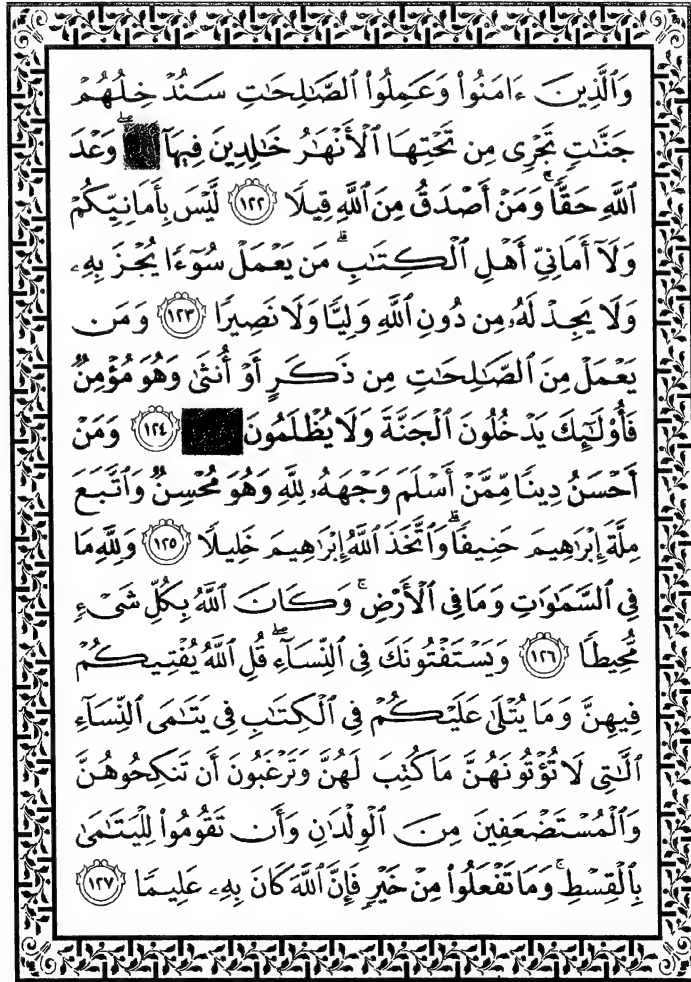 وَالَّذِينَ ءَامَنُوا۟ وَعَمِلُوا۟ الصَّٰلِحَٰتِ سَنُدْخِلُهُمْ
جَنَّٰتٍ تَجْرِى مِن تَحْتِهَا ٱلْأَنْهَٰرُ خَٰلِدِينَ فِيهَآ وَعْدَ
ٱللَّهِ حَقًّا ۚ وَمَنْ أَصْدَقُ مِنَ ٱللَّهِ قِيلًا ١٢٢ لَّيْسَ بِأَمَانِيِّكُمْ
وَلَآ أَمَانِىِّ أَهْلِ ٱلْكِتَٰبِ ۗ مَن يَعْمَلْ سُوٓءًا يُجْزَ بِهِۦ
وَلَا يَجِدْ لَهُۥ مِن دُونِ ٱللَّهِ وَلِيًّا وَلَا نَصِيرًا ١٢٣ وَمَن
يَعْمَلْ مِنَ ٱلصَّٰلِحَٰتِ مِن ذَكَرٍ أَوْ أُنثَىٰ وَهُوَ مُؤْمِنٌ
فَأُو۟لَٰٓئِكَ يَدْخُلُونَ ٱلْجَنَّةَ وَلَا يُظْلَمُونَ ١٢٤ وَمَنْ
أَحْسَنُ دِينًا مِّمَّنْ أَسْلَمَ وَجْهَهُۥ لِلَّهِ وَهُوَ مُحْسِنٌ وَٱتَّبَعَ
مِلَّةَ إِبْرَٰهِيمَ حَنِيفًا ۗ وَٱتَّخَذَ ٱللَّهُ إِبْرَٰهِيمَ خَلِيلًا ١٢٥ وَلِلَّهِ مَا
فِى ٱلسَّمَٰوَٰتِ وَمَا فِى ٱلْأَرْضِ ۚ وَكَانَ ٱللَّهُ بِكُلِّ شَىْءٍ
مُّحِيطًا ١٢٦ وَيَسْتَفْتُونَكَ فِى ٱلنِّسَآءِ ۖ قُلِ ٱللَّهُ يُفْتِيكُمْ
فِيهِنَّ وَمَا يُتْلَىٰ عَلَيْكُمْ فِى ٱلْكِتَٰبِ فِى يَتَٰمَى ٱلنِّسَآءِ
ٱلَّٰتِى لَا تُؤْتُونَهُنَّ مَا كُتِبَ لَهُنَّ وَتَرْغَبُونَ أَن تَنكِحُوهُنَّ
وَٱلْمُسْتَضْعَفِينَ مِنَ ٱلْوِلْدَٰنِ وَأَن تَقُومُوا۟ لِلْيَتَٰمَىٰ
بِٱلْقِسْطِ ۚ وَمَا تَفْعَلُوا۟ مِنْ خَيْرٍ فَإِنَّ ٱللَّهَ كَانَ بِهِۦ عَلِيمًا ١٢٧